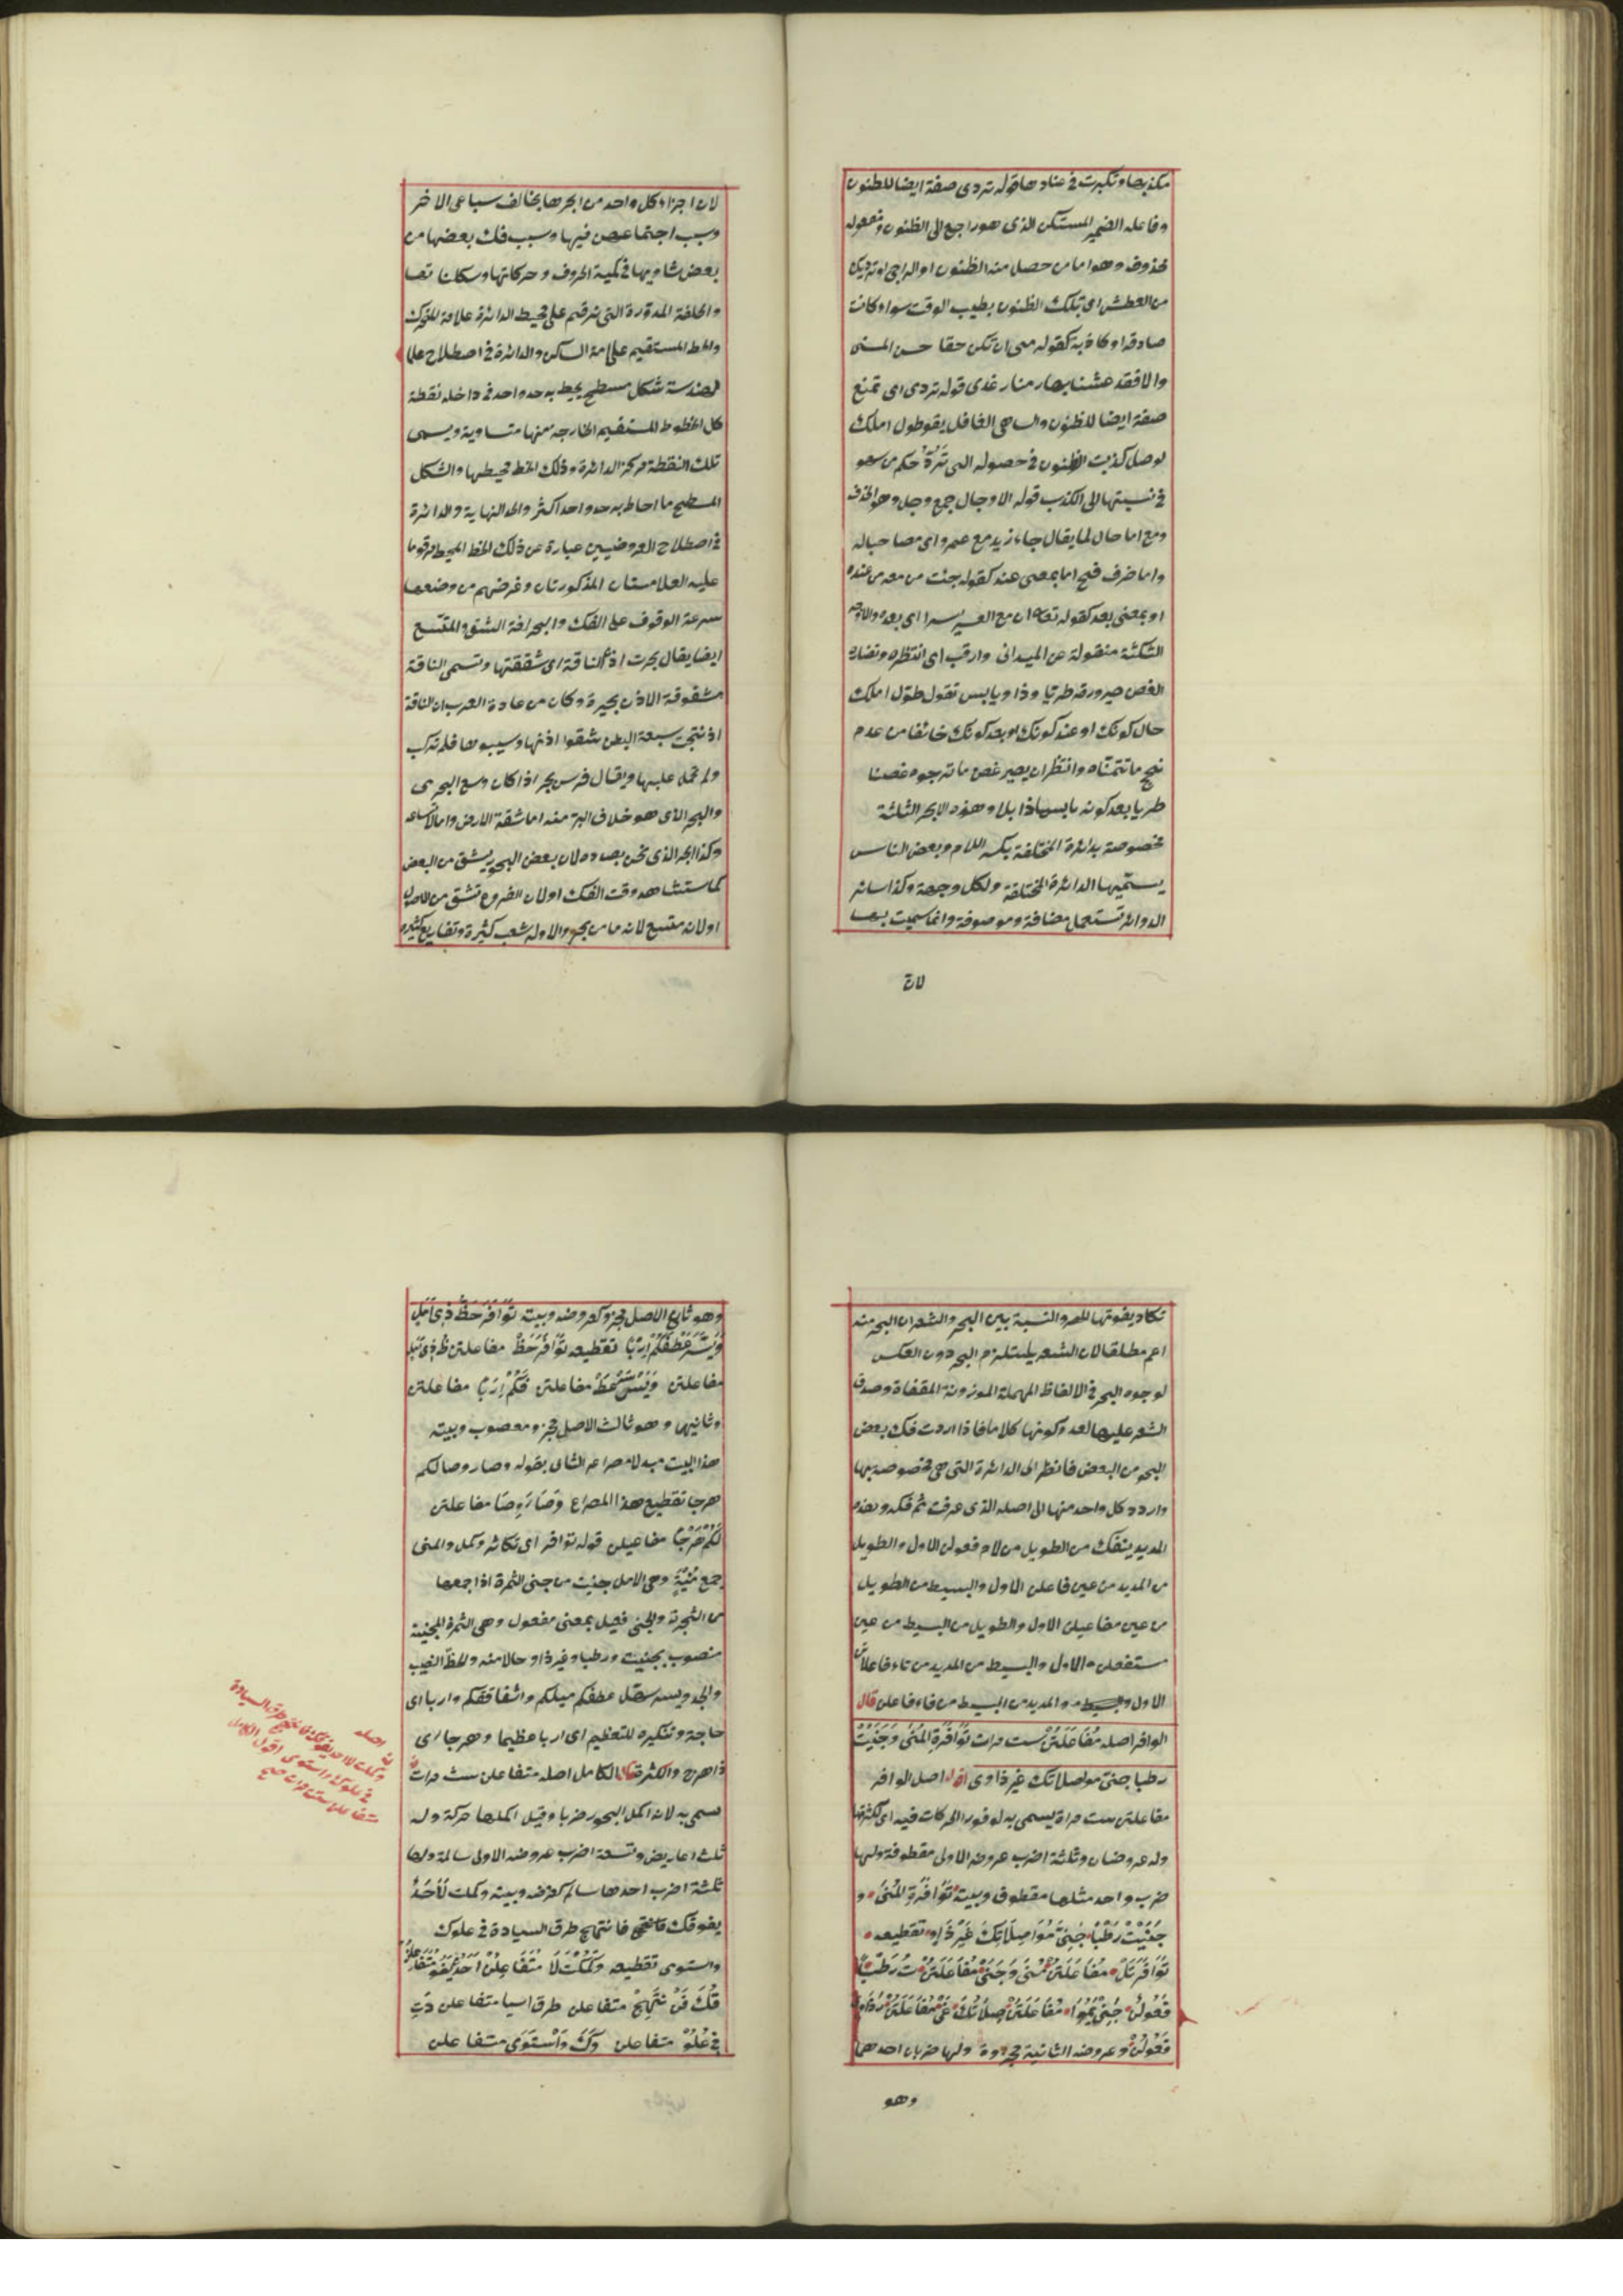 مكذبها وتكبرت في عنادها قوله تردى صفة ايضا للظنون
وفاعله الضمير المستكن الذى هو راجع الى الظنون ومفعوله
محذوف وهو اما من حصل منه الظنون او الراجى او تهديك
من العطش اى تلك الظنون بطيب الوقت سواء كانت
صادقة او كاذبة كقوله منى ان تكن حقا حسن المنى
والا فقد عشنا بها زمنا رغدى قوله تردى اى تمنع
صفة ايضا للظنون والساهى الغافل يقول طول املك
لوصل كذبت الظنون في حصوله التى تردّه حكم من سهو
في نسبتها الى الكذب قوله الاوجال جمع وجل وهو الخوف
ومع اما حال لما يقال جاء زيد مع عمرو اى مصاحبا له
واما ظرف فتح اما بمعنى عند كقوله جئت من معه من عنده
او بمعنى بعد كقوله تعالى ان مع العسر يسرا اى بعده والاوجه
الثلثة منقولة عن الميدانى وارقب اى انتظره ونضارة
الغصن صيرورته طريا وذاو يابس تقول طول املك
حال كونك او عند كونك او بعد كونك خائفا من عدم
نجح ما تتمناه وانتظر ان يصير غصن ما ترجوه غصنا
طريا بعد كونه يابسا ذابلا وهذه الابحر الثلثة
مخصوصة بدائرة المختلفة بكسر اللام وبعض الناس
يسميها الدائرة المختلفة ولكل وجهة وكذا سائر
الدوائر تستعمل مضافة وموصوفة وانما سميت بها
لان
لان اجزاء كل واحد من ابحرها يخالف سباعى الاخر
وسبب اجتماعهن فيها وسبب فك بعضها من
بعض تساويها في كمية الحروف وحركاتها وسكناتها
والحلقة المدورة التى ترقم على محيط الدائرة علامة المتحرك
والخط المستقيم علامة الساكن والدائرة في اصطلاح علماء
الهندسة شكل مسطح يحيط به حد واحد في داخله نقطة
كل الخطوط المستقيم الخارجة منها متساوية ويسمى
تلك النقطة مركز الدائرة وذلك الخط محيطها والشكل
المسطح ما احاط به حد واحد اكثر والحد النهاية والدائرة
في اصطلاح العروضيين عبارة عن ذلك الخط المحيط مرقوما
عليه العلامتان المذكورتان وغرضهم من وضعها
سرعة الوقوف على الفك والبحر لغة الشق والمتسع
ايضا يقال بحرت اذن الناقة اى شققتها وتسمى الناقة
مشقوقة الاذن بحيرة وكان من عادة العرب ان الناقة
اذا نتجت سبعة ابطن شقوا اذنها وسيبوها فلم تركب
ولم تحمل عليها ويقال فرس بحر اذا كان وسع الجرى
والبحر الذى هو خلاف البر منه اما شقة الارض واما لاتساعه
وكذا البحر الذى نحن بصدده لان بعض البحور يشق من البعض
كما ستشاهد وقت الفك او لان الفروع تشق من الاصول
او لانه متسع لانه ما من بحر والا وله شعب كثيرة وتفاريع كثيرة
تكاد يفوتها الحصر والنسبة بين البحر والشعر ان البحر منه
اعم مطلقا لان الشعر يستلزم البحر دون العكس
لوجود البحر في الالفاظ المهملة الموزونة المقفاة وصدق
الشعر عليها لعدم كونها كلاما فاذا اردت فك بعض
البحر من البعض فانظر الى الدائرة التى هى مخصوصة بها
واردد كل واحد منها الى اصله الذى عرفت ثم فكه وبعده
المديد ينفك من الطويل من لام فعولن الاول والطويل
من المديد من عين فاعلن الاول والبسيط من الطويل
من عين مفاعيلن الاول والطويل من البسيط من عين
مستفعلن الاول والبسيط من المديد من تاء فاعلاتن
الاول والمديد من البسيط من فاء فاعلن قال
الوافر اصله مُفَاعَلَتُنْ ست مرات تَوَافُرَةِ المُنَى وَجَنَيْتْ
رطبا جنىّ مواصلاتك غير ذاوى اقول اصل الوافر
مفاعلتن ست مراة يسمى به لوفور الحركات فيه اى لكثرتها
وله عروضان وثلثة اضرب عروضه الاولى مقطوفة ولها
ضرب واحد مثلها مقطوف وبيته تَوَافُرَةِ المُنَى و
جَنَيْتْ رَطْبًا جَنِىَّ مُوَاصِلَاتِكَ غَيْرَ ذَاوِ تقطيعه
تَوَافَرَتَلْ مُفَاعَلَتُنْ مُنَى وَجَنَىْ مُفَاعَلَتُنْ تُ رَطْبًا
فَعُولُنْ جَنِىْيَمُوَا مُفَاعَلَتُنْ صِلَاتُكَ غَىْ مُفَاعَلَتُنْ رَذَاوِ
فَعُولُنْ وعروضه الثانية مجزوة ولها ضربان احدهما
وهو
وهو ثانى الاصل مجزو كعروضه وبيته تَوَافَرَ حَظُّ ذِى اَمَلِ
وَيَسَّرَ عَطْفُكُمْ اِرَبًا تقطيعه تَوَافَرَ حَظْ مفاعلتن ظُ ذِى اَمَلِ
مفاعلتن وَيَسَّرَ عَطْ مفاعلتن فُكُمْ اِرَبًا مفاعلتن
وثانيها وهو ثالث الاصل مجزو معصوب وبيته
هذا البيت مبدلا مصراعه الثانى بقوله وصار وصالكم
هرجا تقطيع هذا المصراع وَصَارَ وِصَا مفاعلتن
لُكُمْ هَرْجًا مفاعيلن قوله توافر اى تكاثر وكمل والمنى
جمع مُنْيَةٍ وهى الامل جنيت من جنى الثمرة اذا جمعها
من الشجرة والجنى فعيل بمعنى مفعول وهى الثمرة المجنية
منصوب بجنيت ورطبا وغير ذاو حالا منه والحظ النصيب
والجد ويسر سهل عطفكم ميلكم واشفاقكم واربا اى
حاجة وتنكيره للتعظيم اى اربا عظيما وهرجا اى
ذا هرج والكثرة قال الكامل اصله متفاعلن ست مرات
سمى به لانه اكمل البحور ضربا وقيل اكملها حركة وله
ثلث اعاريض وتسعة اضرب عروضه الاولى سالمة ولها
ثلثة اضرب احدها سالم كعروضه وبيته وكملت لَا اَحَدٌ
يفوقك فانتهج طرق السيادة في علوك
واستوى تقطيعه وَكَمُلْتَ لَا مُتَفَاعِلُنْ اَحَدٌ يَفُو مُتَفَاعِلُنْ
قُكَ فَنْ تَهِجْ متفاعلن طرق اسيا متفاعلن دَتِ
فِى عُلُوْ متفاعلن وِكَ وَاسْتَوَى متفاعلن
اصله
وكملت لا احد يفوقك فانتهج طرق السيادة
في علوك واستوى اقول الكامل
متفاعلن ست مرات صح